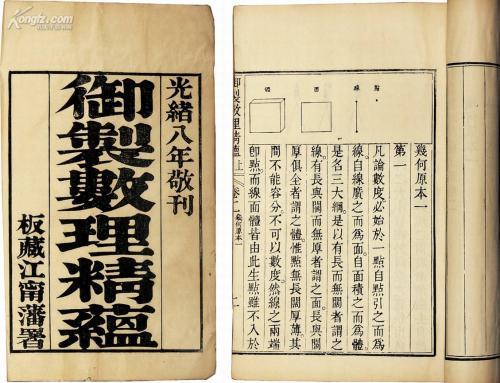 Kongfz.com
光緒八年敬刊
御製數理精蘊
板藏江甯藩署
幾何原本一
第一
點
線
面
體
凡論數度必始於一點自點引之而為
線自線廣之而為面自面積之而為體
是名三大綱是以有長而無闊者謂之
線有長與闊而無厚者謂之面長與闊
厚俱全者謂之體惟點無長闊厚薄其
間不能容分不可以數度然線之兩端
卽點而線面體皆由此生點雖不入於
御製數理精蘊上 卷二幾何原本一